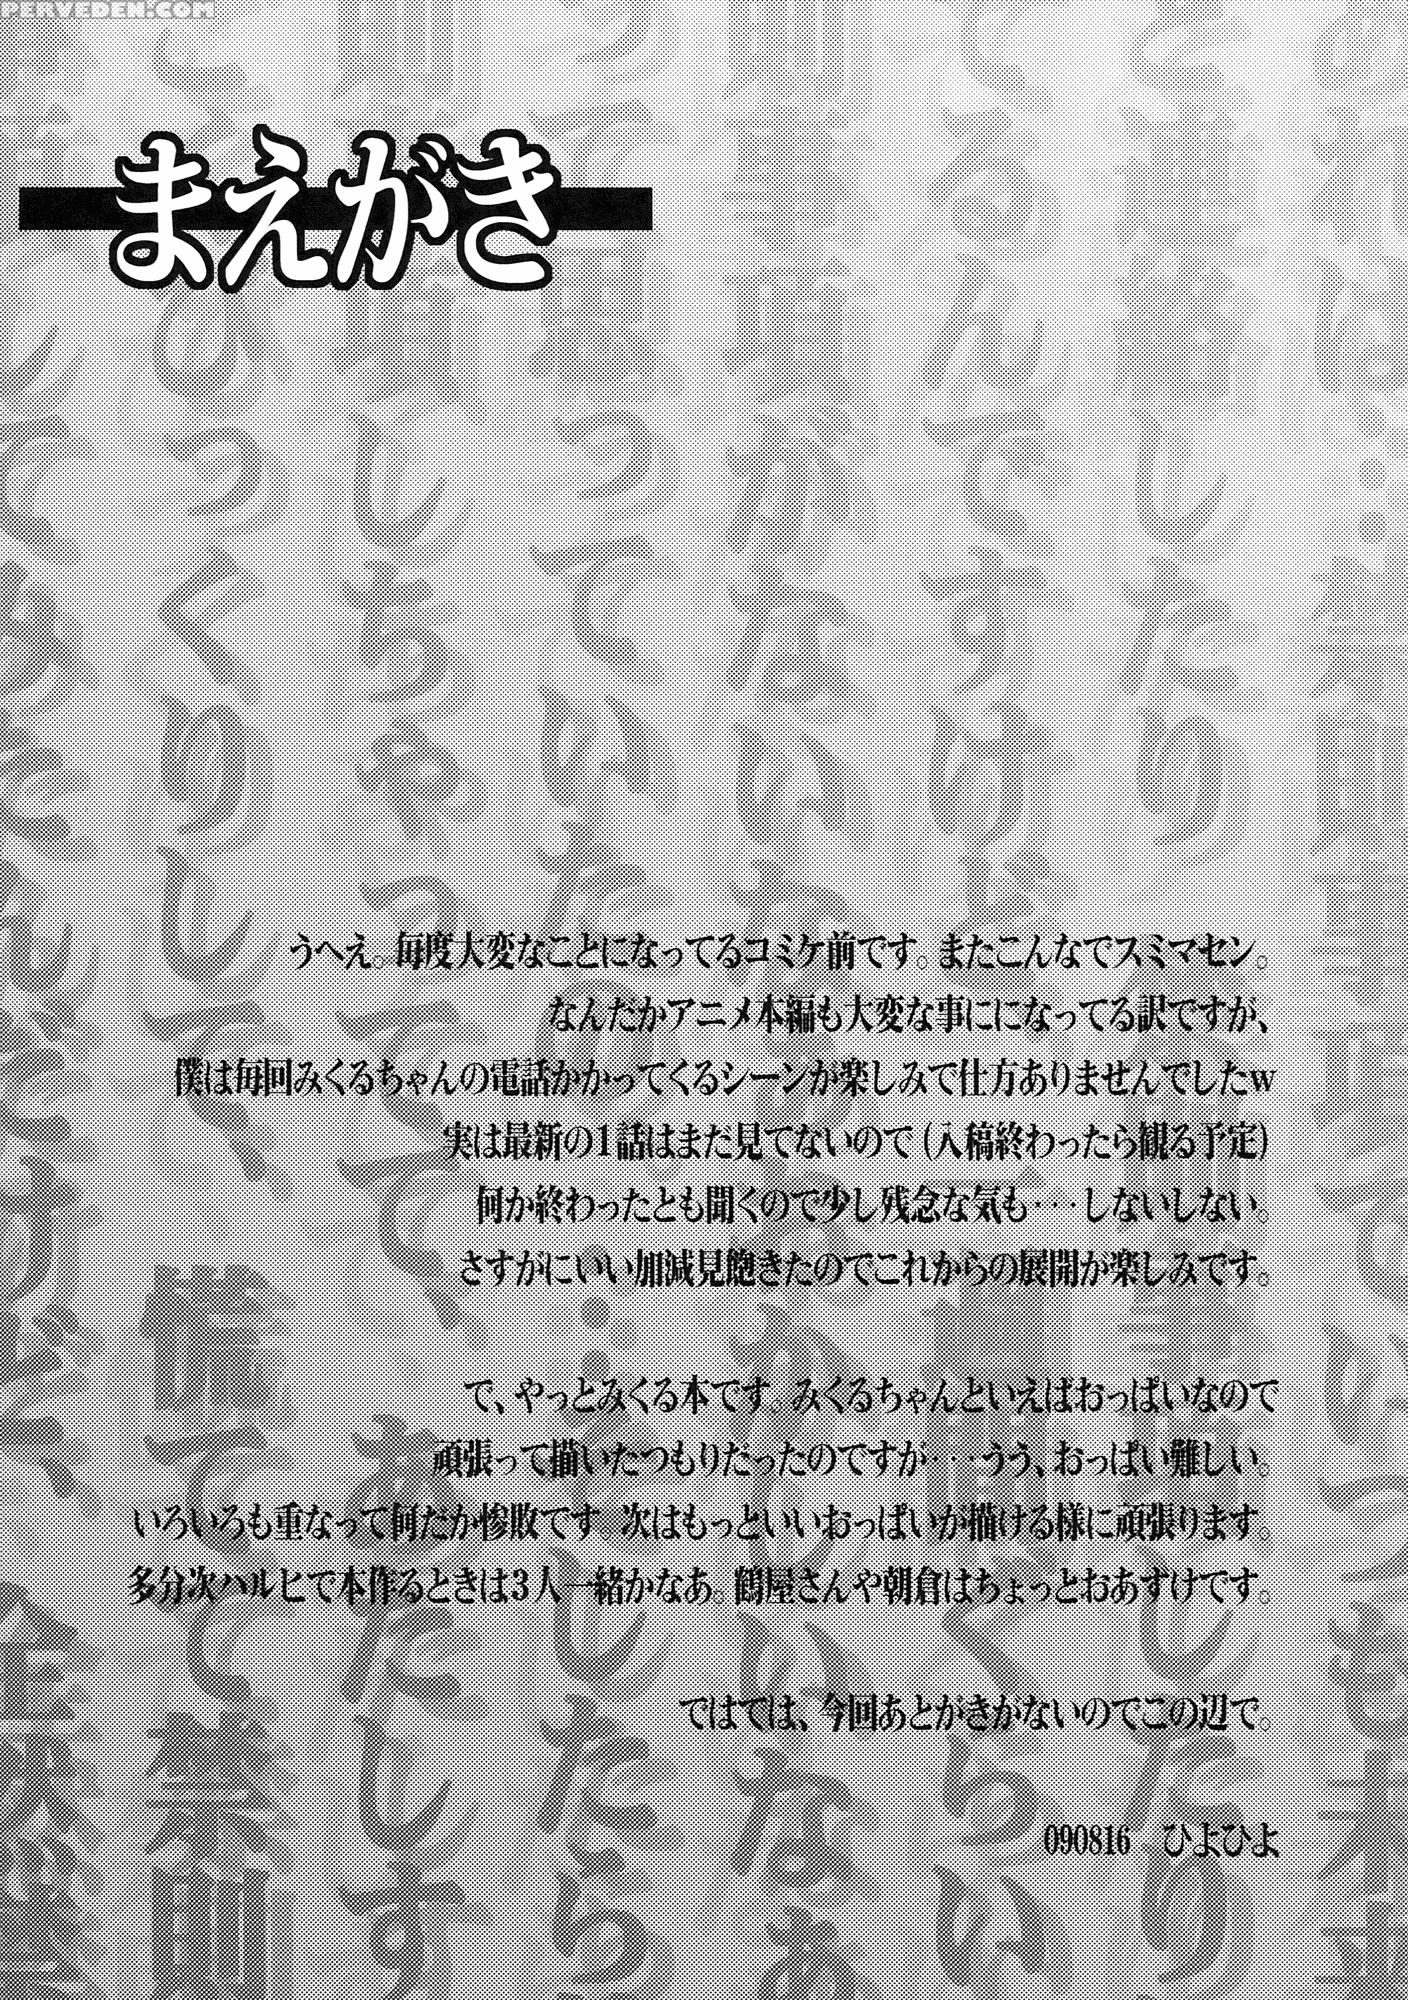 PERVEDEN.COM
まえがき
うへえ。毎度大変なことになってるコミケ前です。またこんなでスミマセン。
なんだかアニメ本編も大変な事にになってる訳ですが、
僕は毎回みくるちゃんの電話かかってくるシーンが楽しみで仕方ありませんでしたw
実は最新の1話はまだ見てないので(入稿終わったら観る予定)
何か終わったとも聞くので少し残念な気も･･･しないしない。
さすがにいい加減見飽きたのでこれからの展開が楽しみです。
で、やっとみくる本です。みくるちゃんといえばおっぱいなので
頑張って描いたつもりだったのですが･･･うう、おっぱい難しい。
いろいろも重なって何だか惨敗です。次はもっといいおっぱいが描ける様に頑張ります。
多分次ハルヒで本作るときは3人一緒かなあ。鶴屋さんや朝倉はちょっとおあずけです。
ではでは、今回あとがきがないのでこの辺で。
090816　ひよひよ